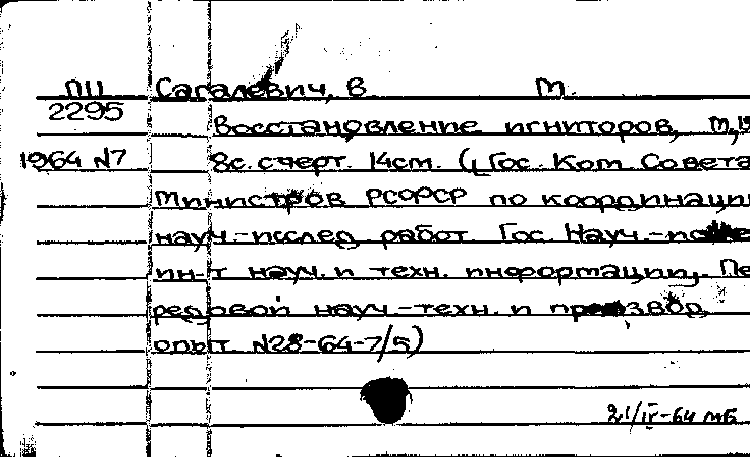 ПЦ Сагалевич, В М.
2295 Восстановление игниторов, М, 19
1964 N7 8с. счерт. 14см. (Гос. Ком Совета
Министров РСФСР по координации
науч.-исслед работ. Гос. Науч.-
ин-т науч. и техн. информации. Пе
редовой науч.-техн. и производ.
опыт. N28-64-7/5)
21/IV-64 МБ